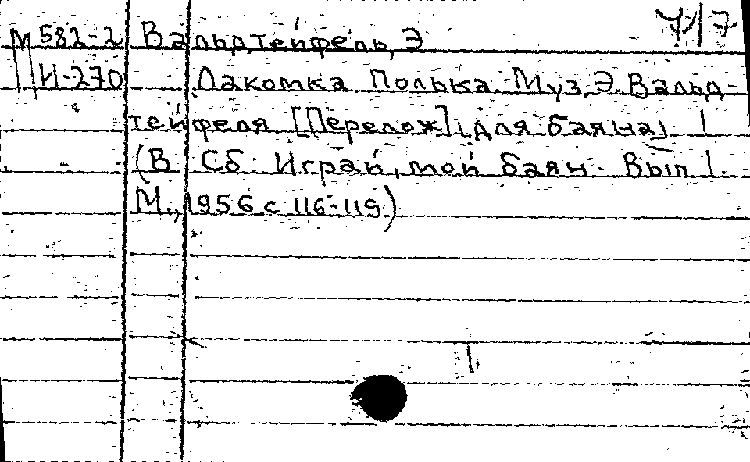 7/7
М582-2 Вальдтейфель, Э
И-270 Лакомка Полька Муз. Э. Вальд-
тейфеля [Перелож] для баяна
(В сб Играй, мой баян. Вып 1.
М., 1956 с 116-119)